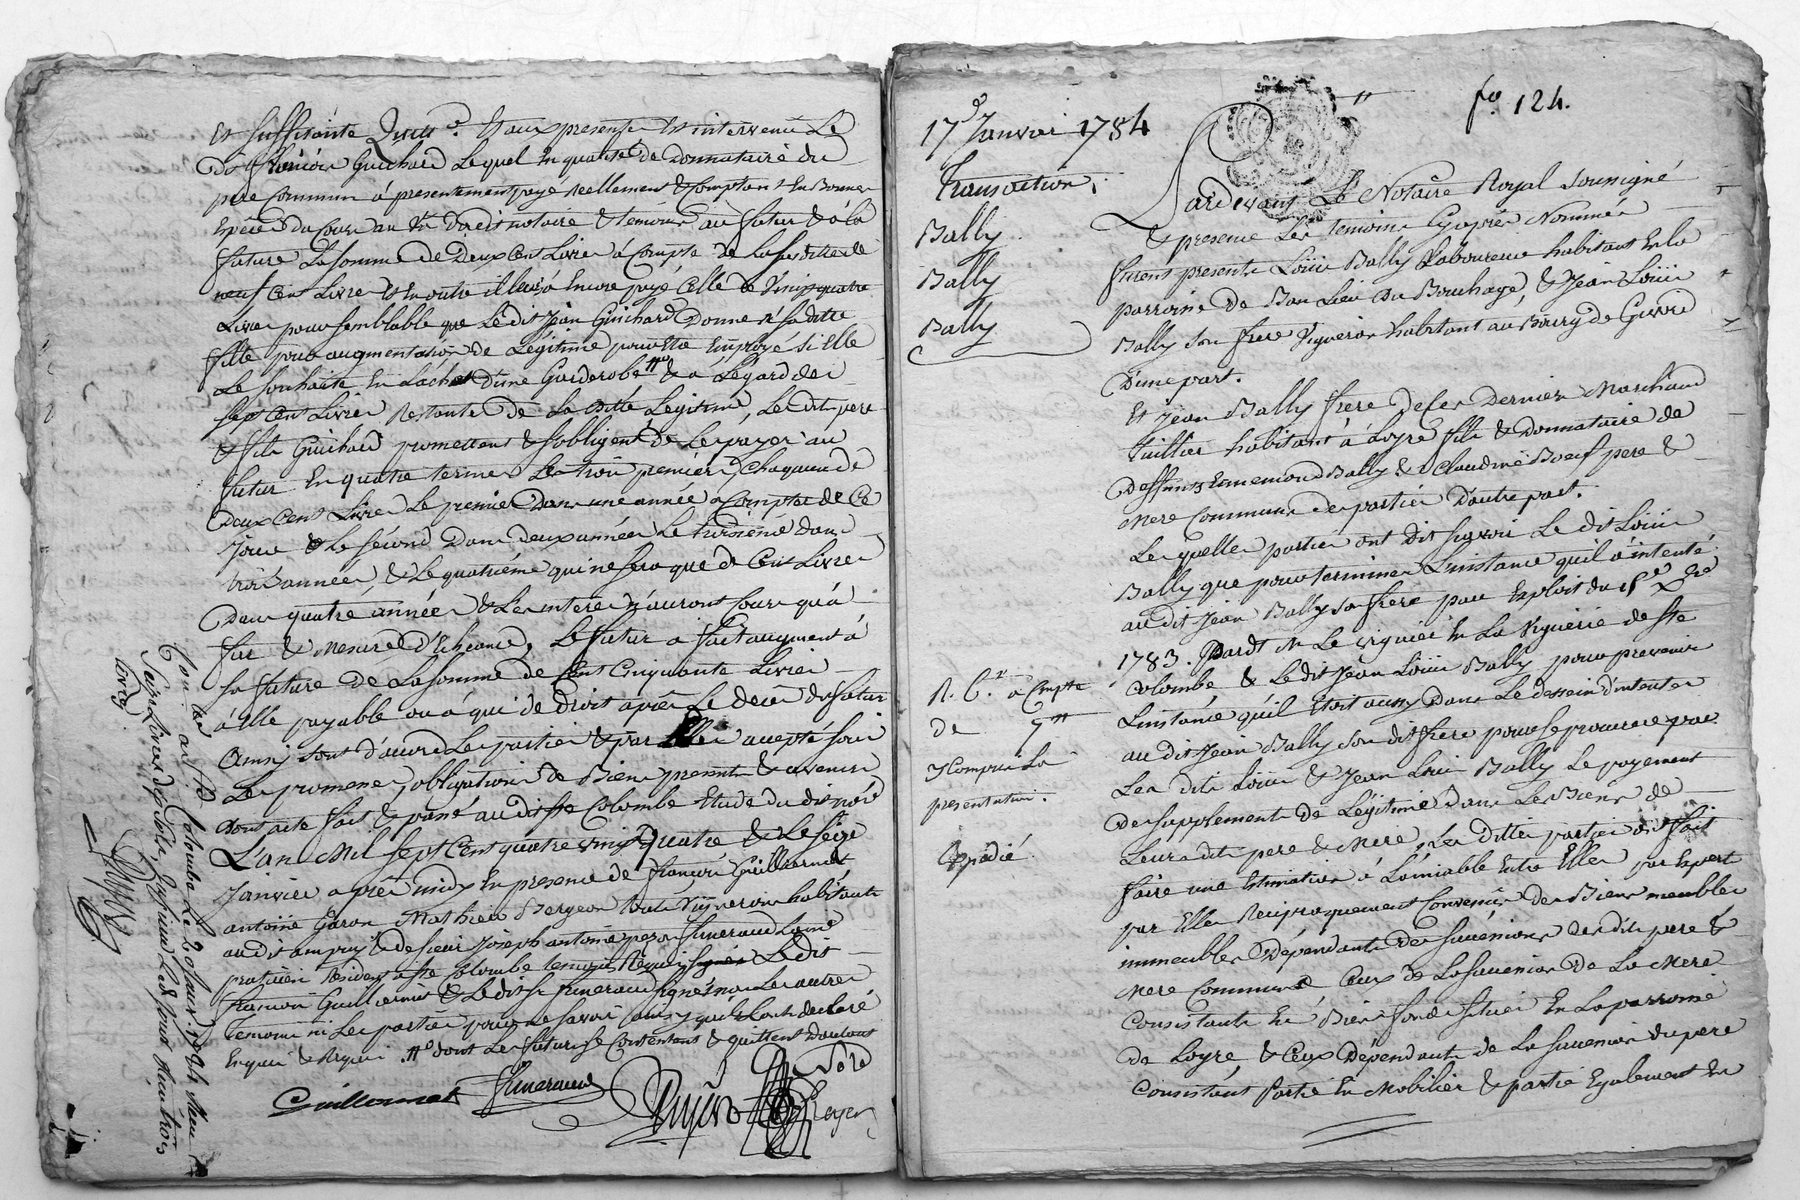 et suffisante Quitt.e Et aux presentes est intervenu Le
Dt François Guichard Lequel en qualité de Donnataire du
pere Commun à presentement payé réellement & Comptant En Bonnes
Espèces du Cours au Vu du dit notaire & temoins au futur & à la
future La Somme de Deux Cent Livres à Compte de La susditte de
neuf Cent Livres & En outre il leur à Encore payé Celle de Vingt quatre
Livres pour semblable que Le dit Jean Guichard Donne à sa ditte
fille pour augmentation de Légitime pour Etre Employé si Elle
Le souhaite En L'achat D'une Garderobe # & à L'égard des
sept Cent Livres Restante de La ditte Légitime, Les dits pere
& fils Guichard promettent & s'obligent de Les payer au
futur En quatre termes Les trois premiers Chaqu'un de
Deux Cent Livres Le premier Dans une année à Compter de Ce
Jour & Le second Dans deux années Le troisième dans
trois années, & Le quatrième qui ne sera que de Cent Livres
Dans quatre années & Les interets n'auront Cours qu'à
fur & Mesure D'Echeance, Le futur à fait augment à
sa future de La somme de Cent Cinquante Livres
à Elle payable ou à qui de Droit après Le deces du futur
Ainsy sont d'accord Les parties & par Elles accepté sous
Les promesses, obligations de Biens presents & avenir
Dont acte fait & passé au dit Ste Colombe Etude du dit no.re
L'an Mil sept Cent quatre vingt quatre & Le seize
Janvier après midy En presence de François Guillermet
antoine Garon Mathieu Bergeon tous Vignerons habitants
au dit ampuy & de sieur Joseph antoine Simeraud
praticien Résident à Ste Colombe temoins Requis Le dit
François Guillermet & Le dit Sr Simeraud signés non Les autres
temoins ni Les parties pour ne savoir ainsy qu'ils L'ont declaré
Enquis & Requis. # dont Les futurs se Contentent & quittent
Guillermet Simeraud
Con.lé à Ste Colombe Le 20 Janv. 1784 Reçu
Seize Livres dix sols
Livres
17e Janvier 1784
Transaction
Bally
Bally
Bally
R. C.r à Compte
de 7#
y Compris La
presentation.
Expédié
fo. 124.
Pardevant Le Notaire Royal soussigné
& presence Les temoins Cy après Nommés
furent presents Loüis Bally Laboureur habitant En la
parroisse de Bon Lieu Du Bouchage, & Jean Loüis
Bally son frere Vigneron habitant au Bourg de Givors
D'une part.
Et Jean Bally frere de ces Derniers Marchand
taillier habitant à Loyre fils & Donnataire de
Deffunts Ennemond Bally & Claudine Boeuf pere &
Mere Communs des parties D'autre part.
Lesquelles parties ont dit sçavoir Le dit Loüis
Bally que pour terminer L'instance qu'il à intenté
au dit Jean Bally son frere par Exploit du
1783. Pardt Mr Le Viguier En La Viguerie de Ste
Colombe & Le dit Jean Loüis Bally pour prevenir
L'instance qu'il Etoit aussy Dans Le dessein d'intenter
au dit Jean Bally son dit frere pour se procurer par
Les dits Loüis & Jean Loüis Bally Le payement
De supplement de Légitime Dans Les Biens de
Leurs dits pere & Mere, Les dittes parties ont fait
faire une Estimation à L'amiable Entre Elles par Expert
par Elles Reciproquement Convenus des Biens meubles
immeubles Dépendants Des successions des dits pere &
Mere Communs Ceux de La succession de La Mere
Consistants En Biens fonds situés En La parroisse
de Loyre & Ceux Dépendants de La succession du pere
Consistant partie En Mobilier & partie Egalement En